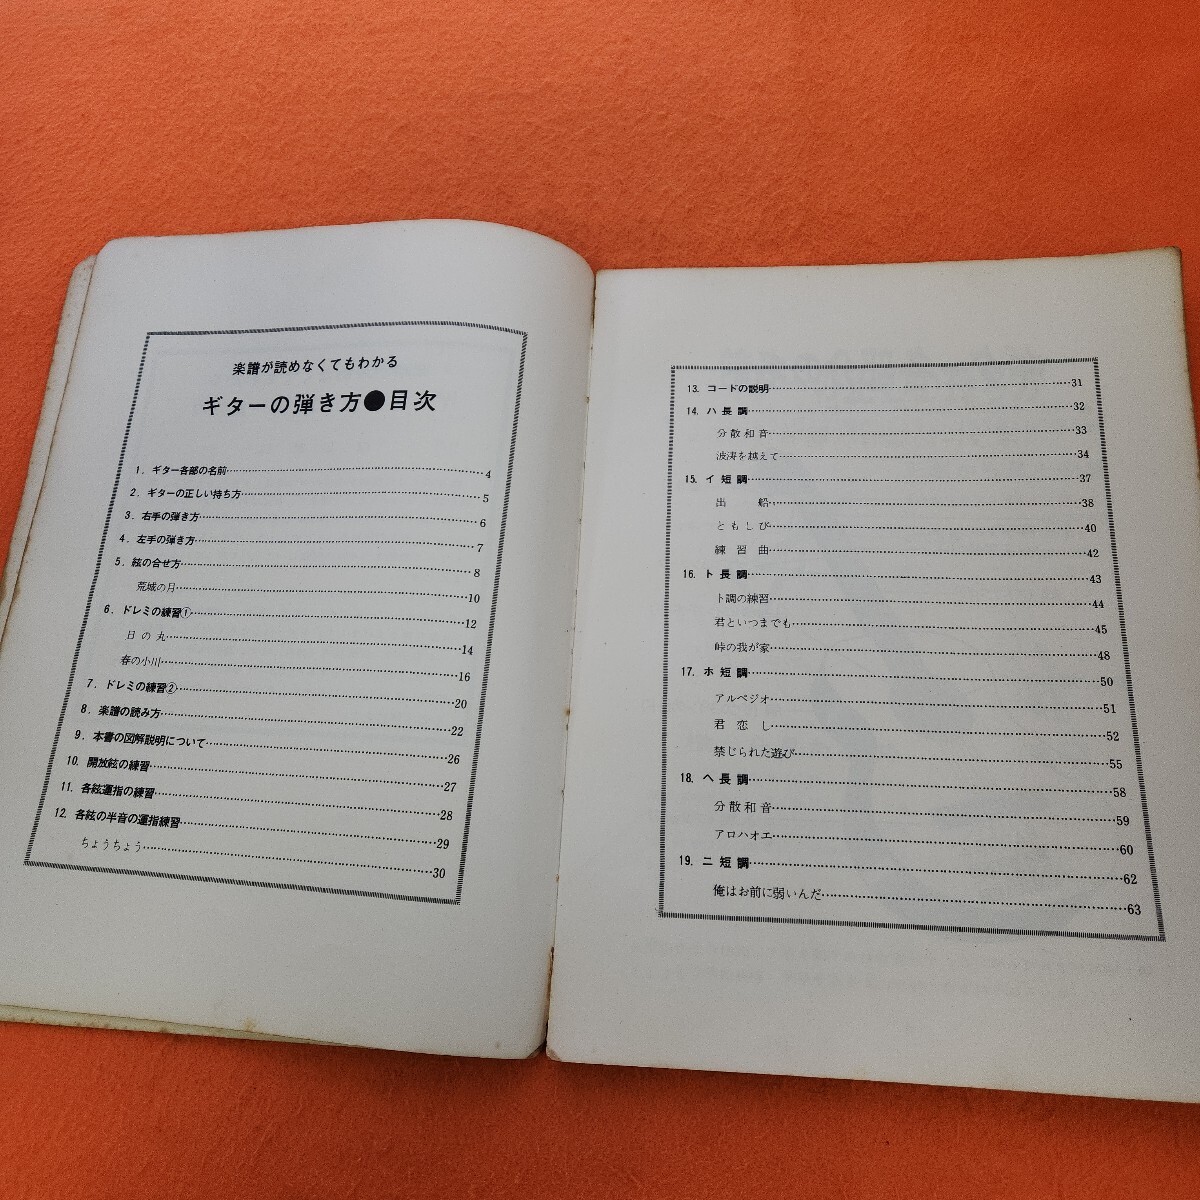 楽譜が読めなくてもわかる
ギターの弾き方●目次
1. ギター各部の名前……4
2. ギターの正しい持ち方……5
3. 右手の弾き方……6
4. 左手の弾き方……7
5. 絃の合せ方……8
荒城の月……10
6. ドレミの練習①……12
日の丸……14
春の小川……16
7. ドレミの練習②……20
8. 楽譜の読み方……22
9. 本書の図解説明について……26
10. 開放絃の練習……27
11. 各絃運指の練習……28
12. 各絃の半音の運指練習……29
ちょうちょう……30
13. コードの説明……31
14. ハ長調……32
分散和音……33
波涛を越えて……34
15. イ短調……37
出船……38
ともしび……40
練習曲……42
16. ト長調……43
ト調の練習……44
君といつまでも……45
峠の我が家……48
17. ホ短調……50
アルペジオ……51
君恋し……52
禁じられた遊び……55
18. ヘ長調……58
分散和音……59
アロハオエ……60
19. ニ短調……62
俺はお前に弱いんだ……63